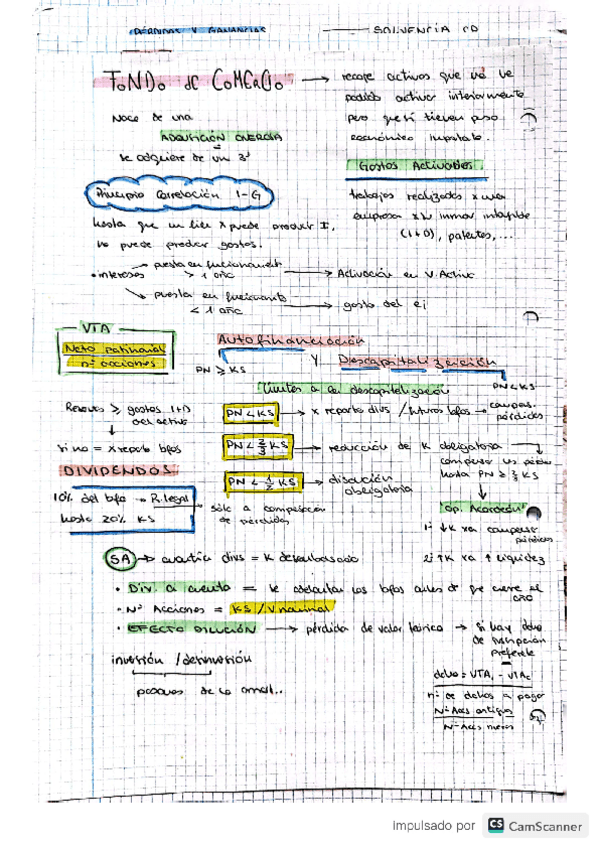 PÉRDIDAS Y GANANCIAS
SOLVENCIA CD
FONDO DE COMERCIO → recoge activos que no se
podido activar interiormente
pero que sí tienen peso
económico
Nace de una
ADQUISICIÓN ONEROSA
se adquiere de un 3º
Gastos Activables
trabajos realizados x una
empresa x su inmov intangible
(I+D), patentes,...
Principio Correlación I-G
hasta que un bien x puede producir I,
no puede producir gastos.
• intereses
puesta en funcionamiento
> 1 año → Activación en V. Activo
puesta en funcionamto
< 1 año → gasto del ej
VTA
Neto patrimonial
nº acciones
Autofinanciación
PN ≥ KS
Y Descapitalización
PN < KS
Límites a la descapitalización
Reservas ≥ gastos I+D
del activo
↓
si no = x reparto bfos
PN < KS → x reparto divs / futuros bfos → compens.
pérdidas
PN < 2/3 KS → reducción de K obligatoria
compensar las pérdidas
hasta PN ≥ 2/3 KS
PN < 1/2 KS → disolución
obligatoria
DIVIDENDOS
10% del bfo → R.legal
hasta 20% KS
sólo a compensación
de pérdidas
op. Acordeón
1º ↓K xa compensar
pérdidas
2º ↑K xa ↑ liquidez
SA → cuantía divs = K desembolsado
• Div. a cuenta = se adelantan los bfos antes d que cierre el
año
• Nº Acciones = KS / V nominal
• EFECTO DILUCIÓN → pérdida de valor teórico → si hay dcho
de suscripción
preferente
inversión / desinversión
dcho = VTA₁ - VTA₂
nº de dchos a pagar
Nº Accs antiguas
Nº Accs nuevas
Impulsado por CS CamScanner